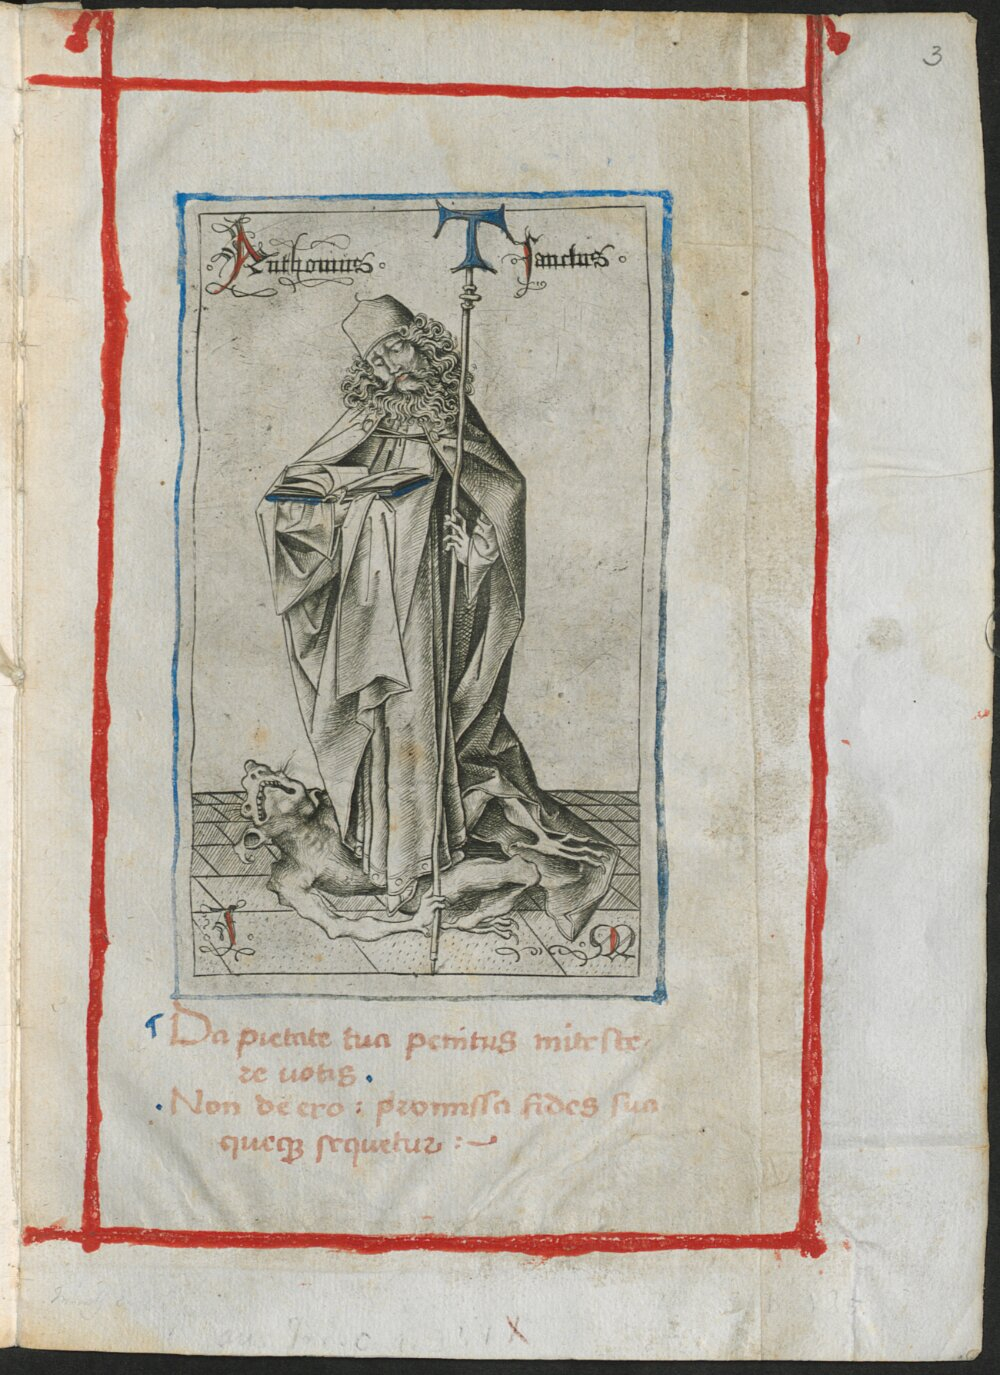 3
Anthonius T Sanctus
I M
Da pietate tua penitus mitesce
re votis.
Non deero: promissa fides sua
queqз sequetur:
X